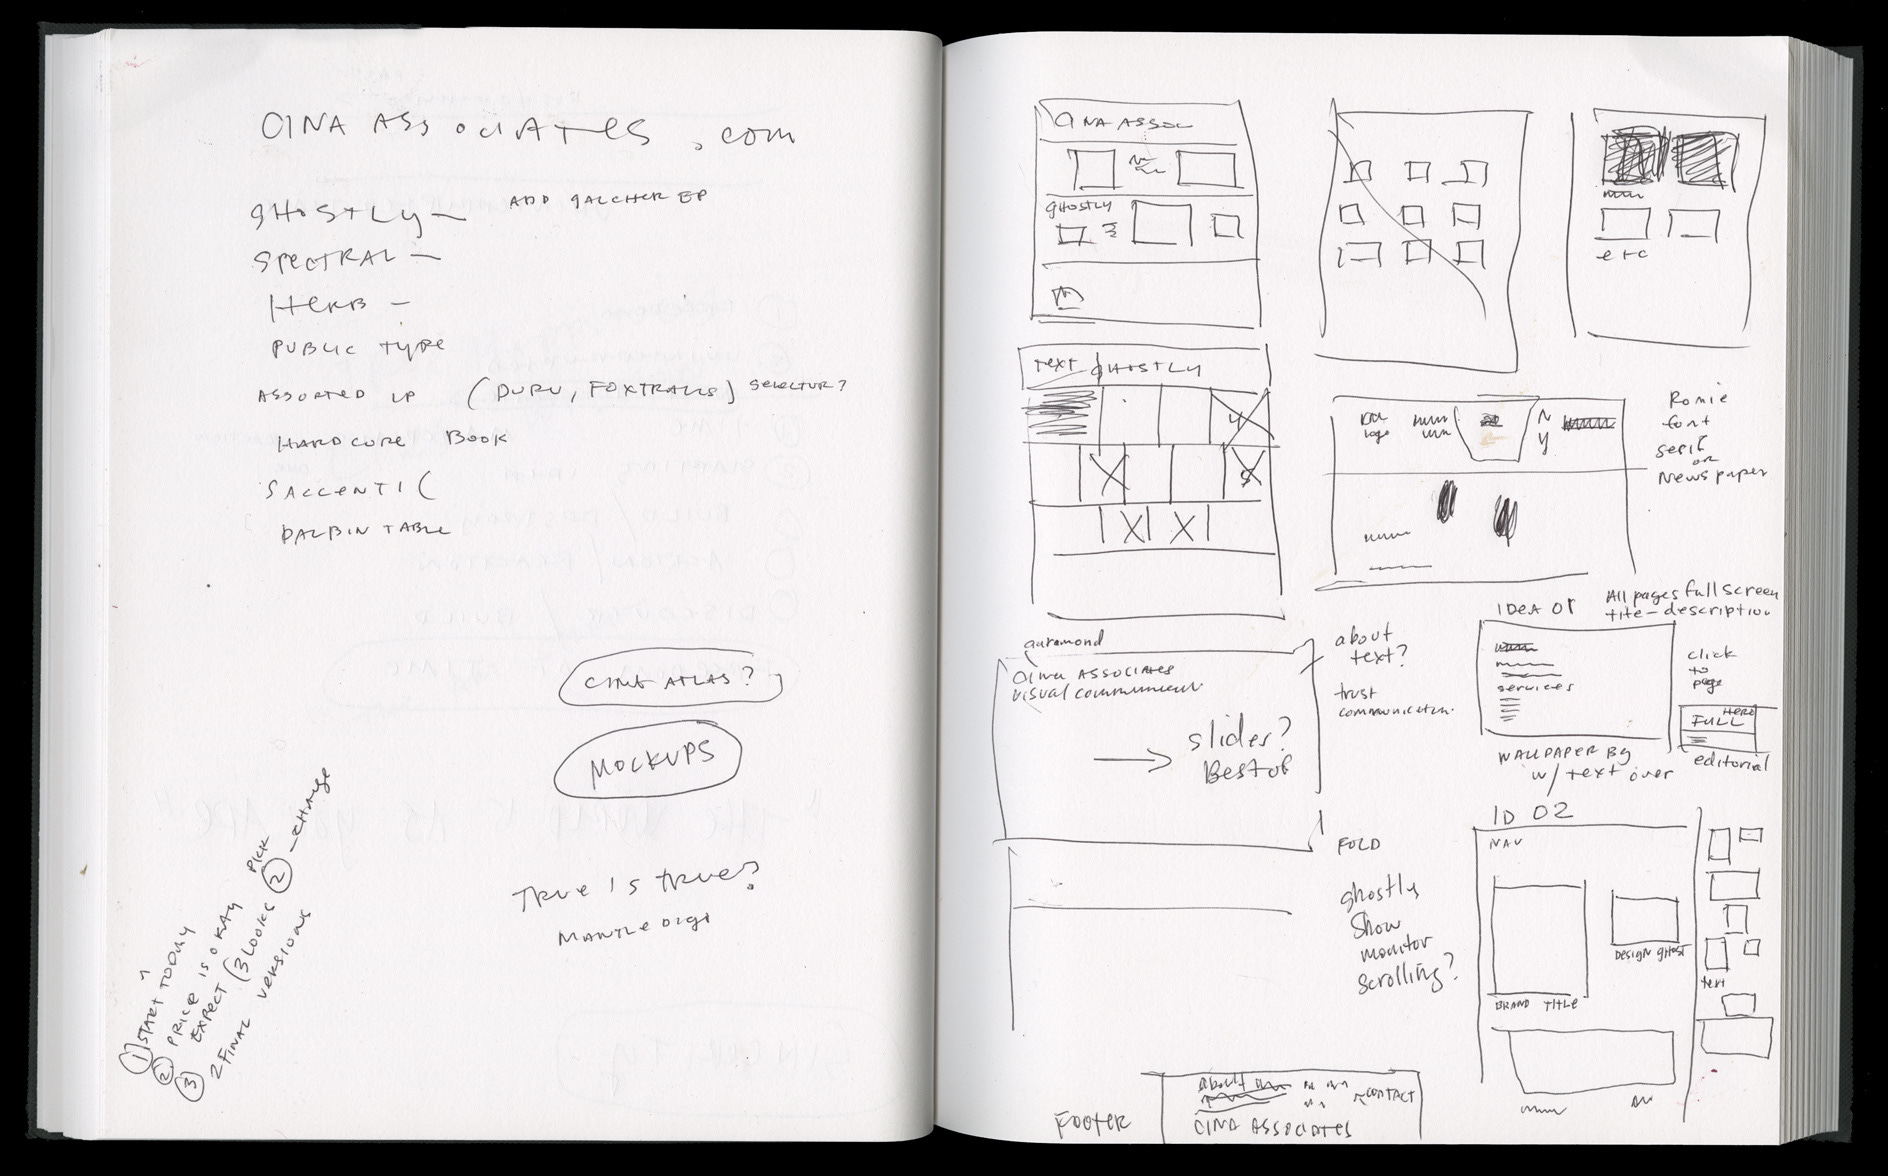 CINA ASSOCIATES.COM
GHOSTLY — ADD GALCHER EP
SPECTRAL —
HERB —
PUBLIC TYPE
ASSORTED LP (DURU, FOXTRAILS) SELECTUR?
HARDCORE BOOK
BALBIN TABLE
CINE ATLAS?
MOCKUPS
TRUE IS TRUE?
MANTLE DIGI
① START TODAY
② PRICE IS OKAY
EXPECT (3 LOOKS PICK ② — CHANGE
③ 2 FINAL VERSIONS
CINA ASSOC
GHOSTLY
etc
text GHOSTLY
logo
NY
Romie
font
serif
or
Newspaper
garamond
CINA ASSOCIATES
visual communicat
→ slides?
Best of
about
text?
trust
communication
IDEA 01
All pages full screen
title - description
services
click
to
page
HERO
FULL
editorial
WALLPAPER BG
w/ text over
FOLD
ghostly
show
monitor
scrolling?
ID 02
NAV
DESIGN GHOST
BRAND TITLE
text
FOOTER
about
CONTACT
CINA ASSOCIATES